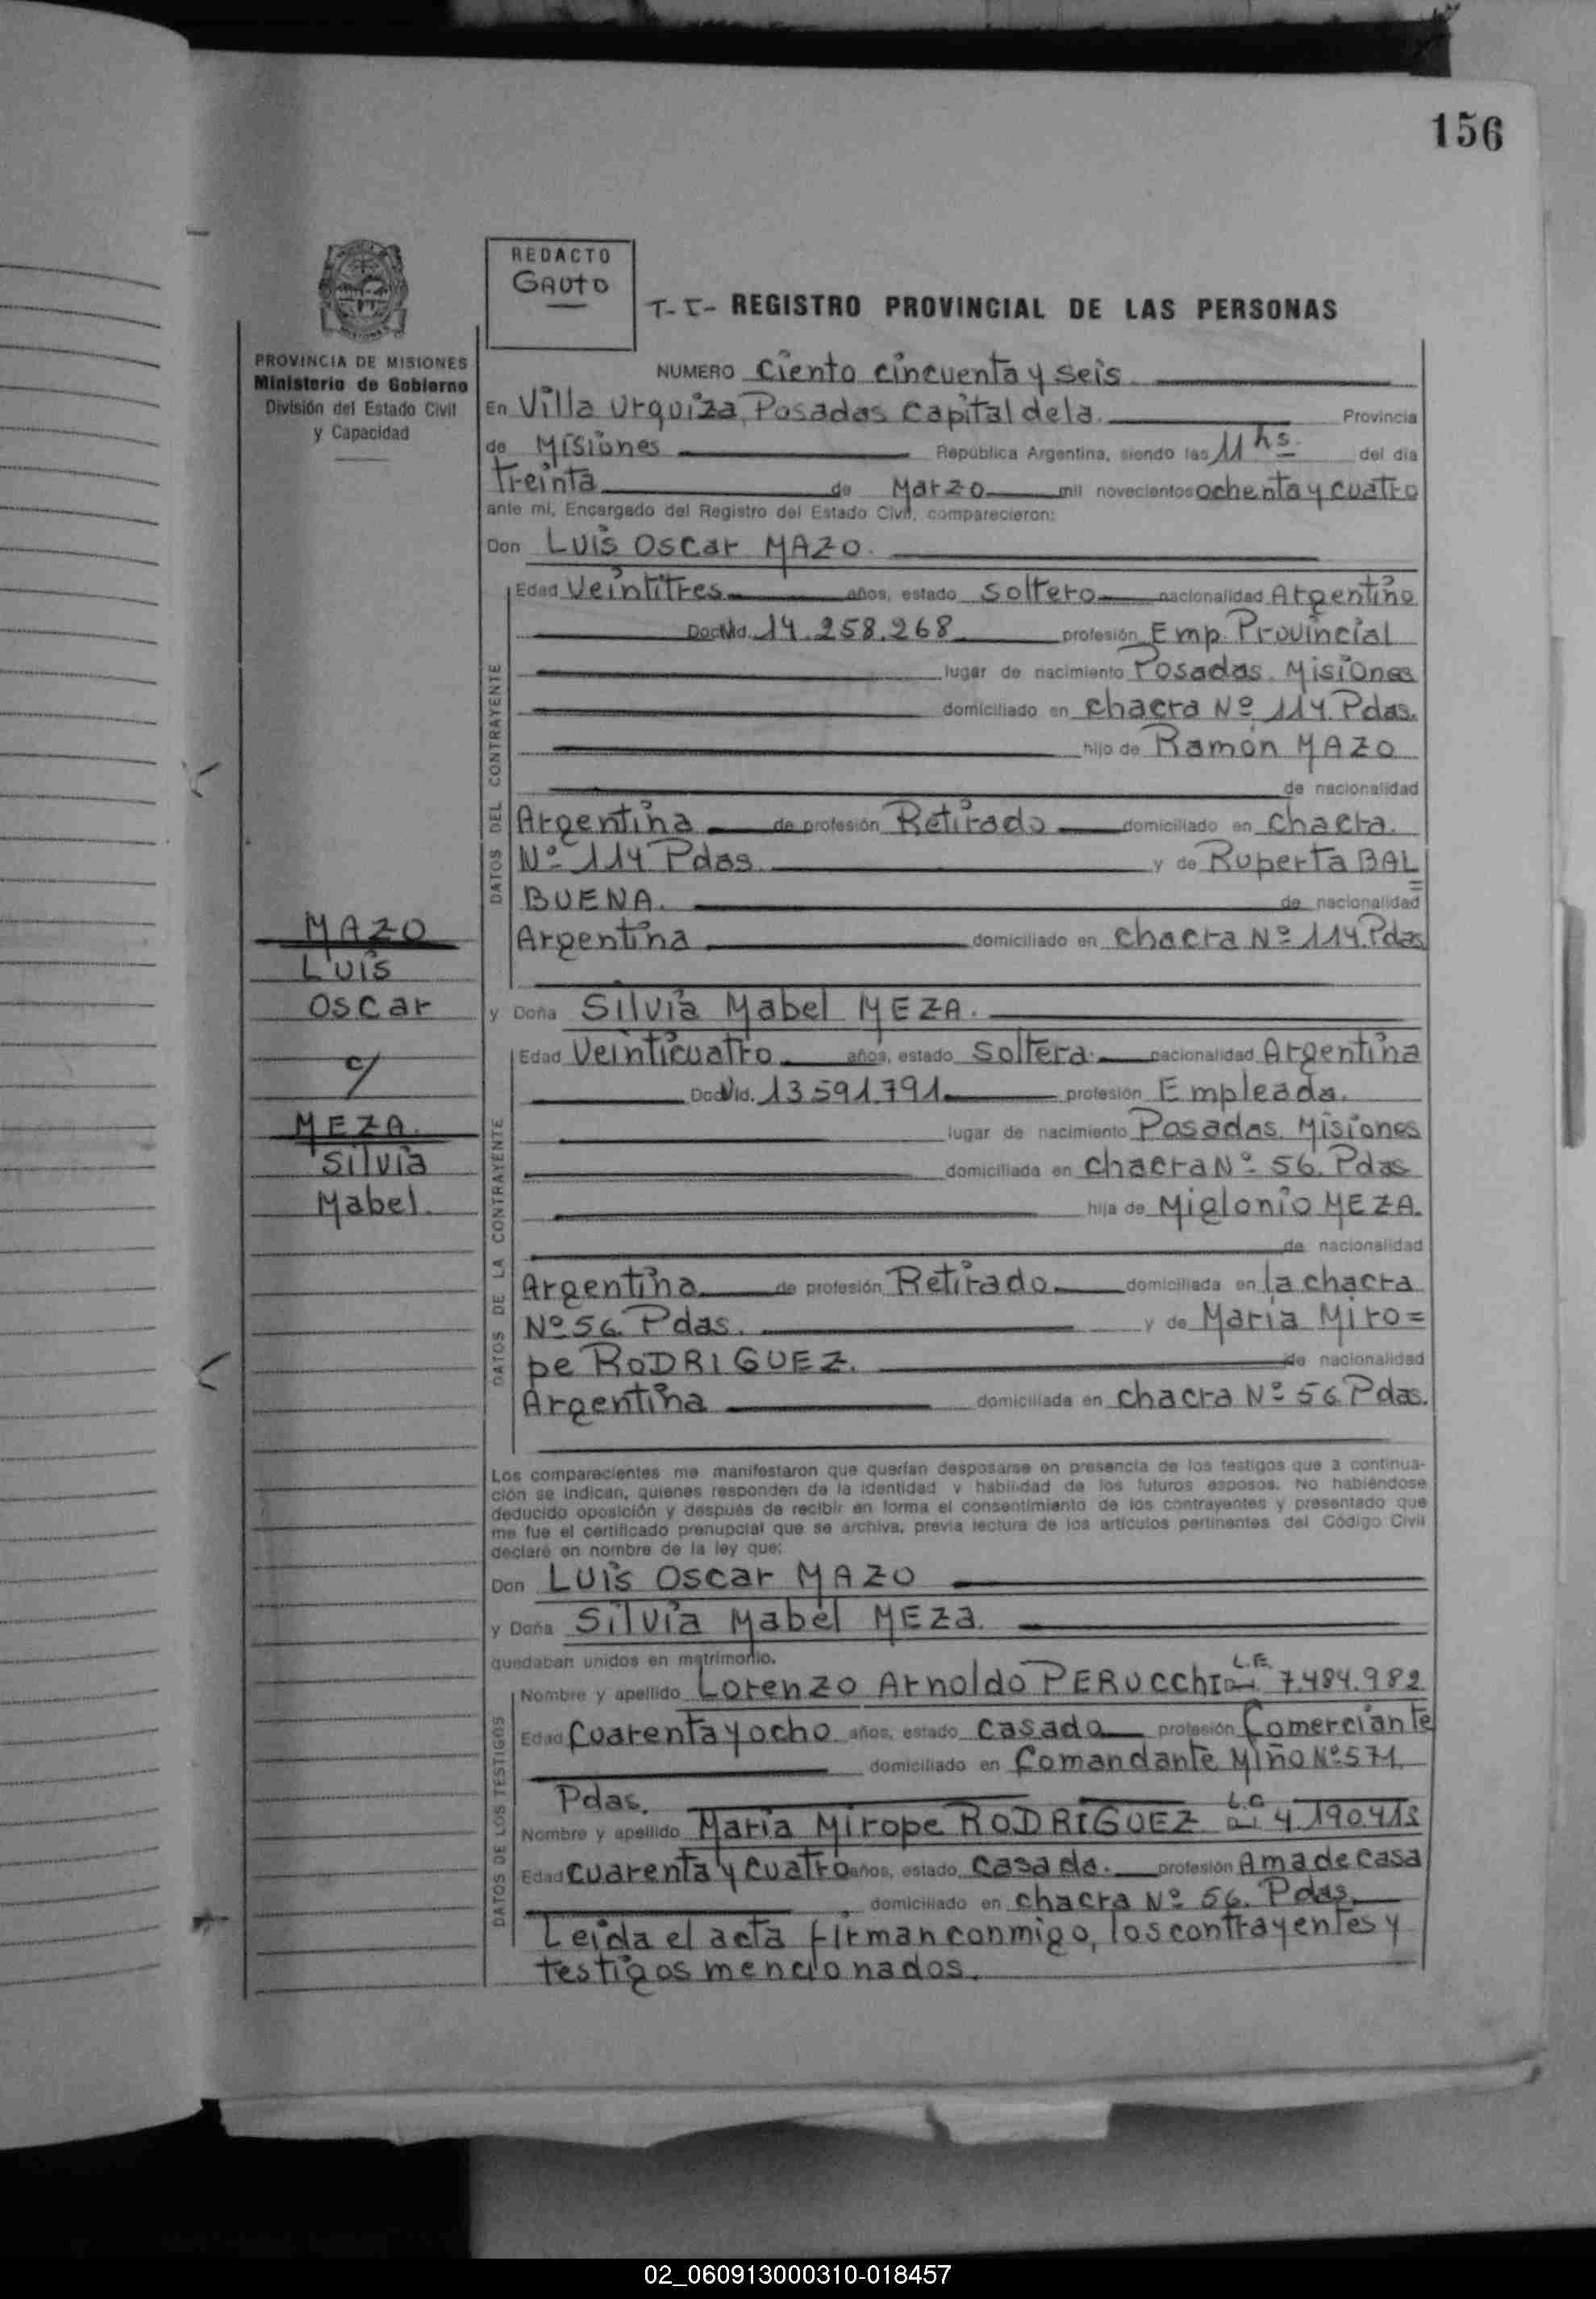 156
REDACTO
GAUTO
T-I- REGISTRO PROVINCIAL DE LAS PERSONAS
PROVINCIA DE MISIONES
Ministerio de Gobierno
División del Estado Civil
y Capacidad
NUMERO Ciento cincuenta y seis
En Villa Urquiza, Posadas Capital de la Provincia
de Misiones República Argentina, siendo las 11 hs. del día
treinta de Marzo mil novecientos ochenta y cuatro
ante mí, Encargado del Registro del Estado Civil, comparecieron:
Don Luis Oscar MAZO.
DATOS DEL CONTRAYENTE
Edad Veintitres años, estado Soltero nacionalidad Argentino
Doc. Nd. 14.258.268 profesión Emp. Provincial
lugar de nacimiento Posadas. Misiones
domiciliado en chacra Nº 114. Pdas.
hijo de Ramón MAZO
de nacionalidad
Argentina de profesión Retirado domiciliado en chacra.
Nº 114 Pdas y de Ruperta BAL=
BUENA. de nacionalidad
Argentina domiciliado en chacra Nº 114. Pdas
MAZO
Luis
Oscar
c/
MEZA.
Silvia
Mabel.
y Doña Silvia Mabel MEZA.
DATOS DE LA CONTRAYENTE
Edad Veinticuatro años, estado Soltera. nacionalidad Argentina
Doc. Nd. 13591.791 profesión Empleada.
lugar de nacimiento Posadas. Misiones
domiciliada en chacra Nº 56. Pdas
hija de Miglonio MEZA.
de nacionalidad
Argentina de profesión Retirado domiciliada en la chacra
Nº 56. Pdas. y de María Miro=
pe RODRIGUEZ. de nacionalidad
Argentina domiciliada en chacra Nº 56 Pdas.
Los comparecientes me manifestaron que querían desposarse en presencia de los testigos que a continua-
ción se indican, quienes responden de la identidad y habilidad de los futuros esposos. No habiéndose
deducido oposición y después de recibir en forma el consentimiento de los contrayentes y presentado que
me fue el certificado prenupcial que se archiva, previa lectura de los artículos pertinentes del Código Civil
declaré en nombre de la ley que:
Don Luis Oscar MAZO
y Doña Silvia Mabel MEZA.
quedaban unidos en matrimonio.
DATOS DE LOS TESTIGOS
Nombre y apellido Lorenzo Arnoldo PERUCCHI L.E. 7.484.982
Edad Cuarenta y ocho años, estado casado profesión Comerciante
domiciliado en Comandante Miño Nº 571.
Pdas.
Nombre y apellido María Mirope RODRIGUEZ L.C 4.190413
Edad cuarenta y cuatro años, estado casada. profesión Ama de casa
domiciliado en chacra Nº 56. Pdas.
Leida el acta firman conmigo, los contrayentes y
testigos mencionados.
02_060913000310-018457